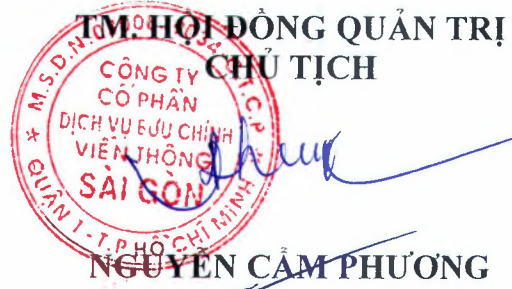 TM. HỘI ĐỒNG QUẢN TRỊ
CHỦ TỊCH
CÔNG TY
CỔ PHẦN
DỊCH VỤ BƯU CHÍNH
VIỄN THÔNG
SÀI GÒN
QUẬN 1 - T.P HỒ CHÍ MINH
NGUYỄN CẨM PHƯƠNG